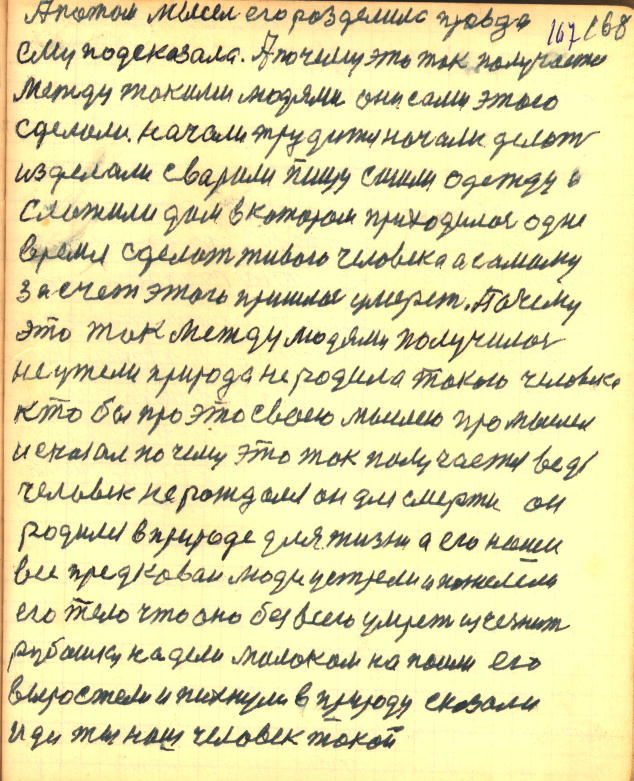 167 168
А потом мысел его разделила правда
ему подсказала. А почему это так получается
между такими людями они сами этого
сделали. начали трудится начали делат
изделали сварили пищу сшили одежду и
сложили дом в котором приходилос одне
время сделат живого человека а самому
за счет этого пришлос умерет. Почему
это так между людями получилос
неужели природа не родила такого человека
кто бы про это своею мыслею промыслел
и сказал почему это так получается ведь
человек не рождался он для смерти он
родился в природе для жизни а его наши
все предковаи люди устрели и пожелели
его тело что оно без всего умрет изчезнит
рубашку надели малоком напоили его
выростели и пихнули в природу сказали
иди ты наш человек такой